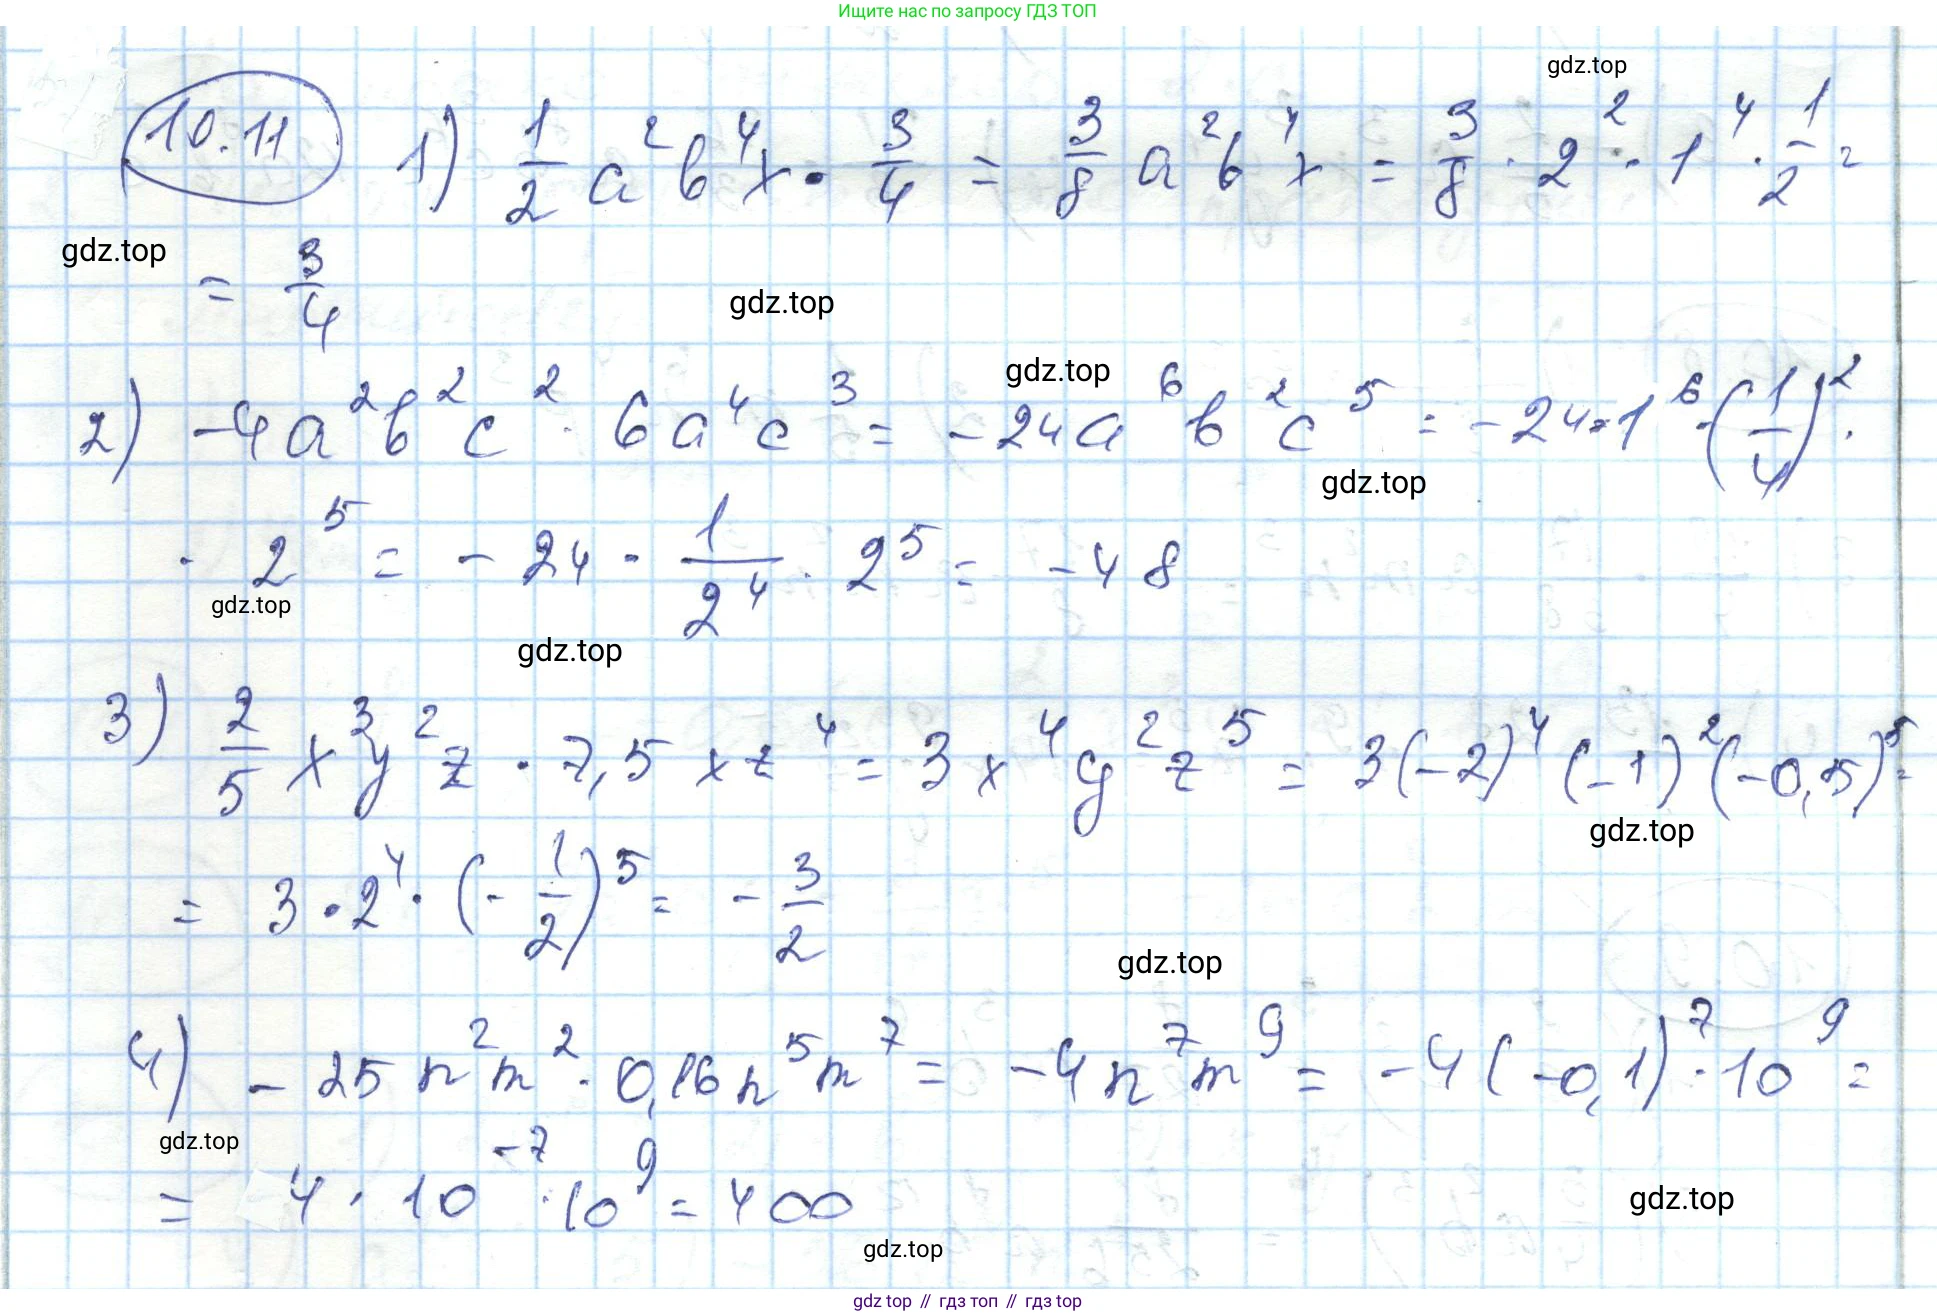 Ищите нас по запросу ГДЗ ТОП
gdz.top
10.11 1) 1/2 a²b⁴x · 3/4 = 3/8 a²b⁴x = 3/8 · 2² · 1⁴ · 1/2 =
gdz.top
= 3/4
gdz.top
gdz.top
2) -4a²b²c² · 6a⁴c³ = -24a⁶b²c⁵ = -24·1⁶·(1/4)² ·
gdz.top
· 2⁵ = -24 · 1/2⁴ · 2⁵ = -48
gdz.top
gdz.top
3) 2/5 x³y²z · 7,5xz⁴ = 3x⁴y²z⁵ = 3(-2)⁴(-1)²(-0,5)⁵ =
gdz.top
= 3·2⁴·(-1/2)⁵ = -3/2
gdz.top
4) -25n²m² · 0,16n⁵m⁷ = -4n⁷m⁹ = -4(-0,1)⁷·10⁹ =
gdz.top
= 4 · 10⁻⁷ · 10⁹ = 400
gdz.top
gdz.top
gdz top // гдз топ // гдз top